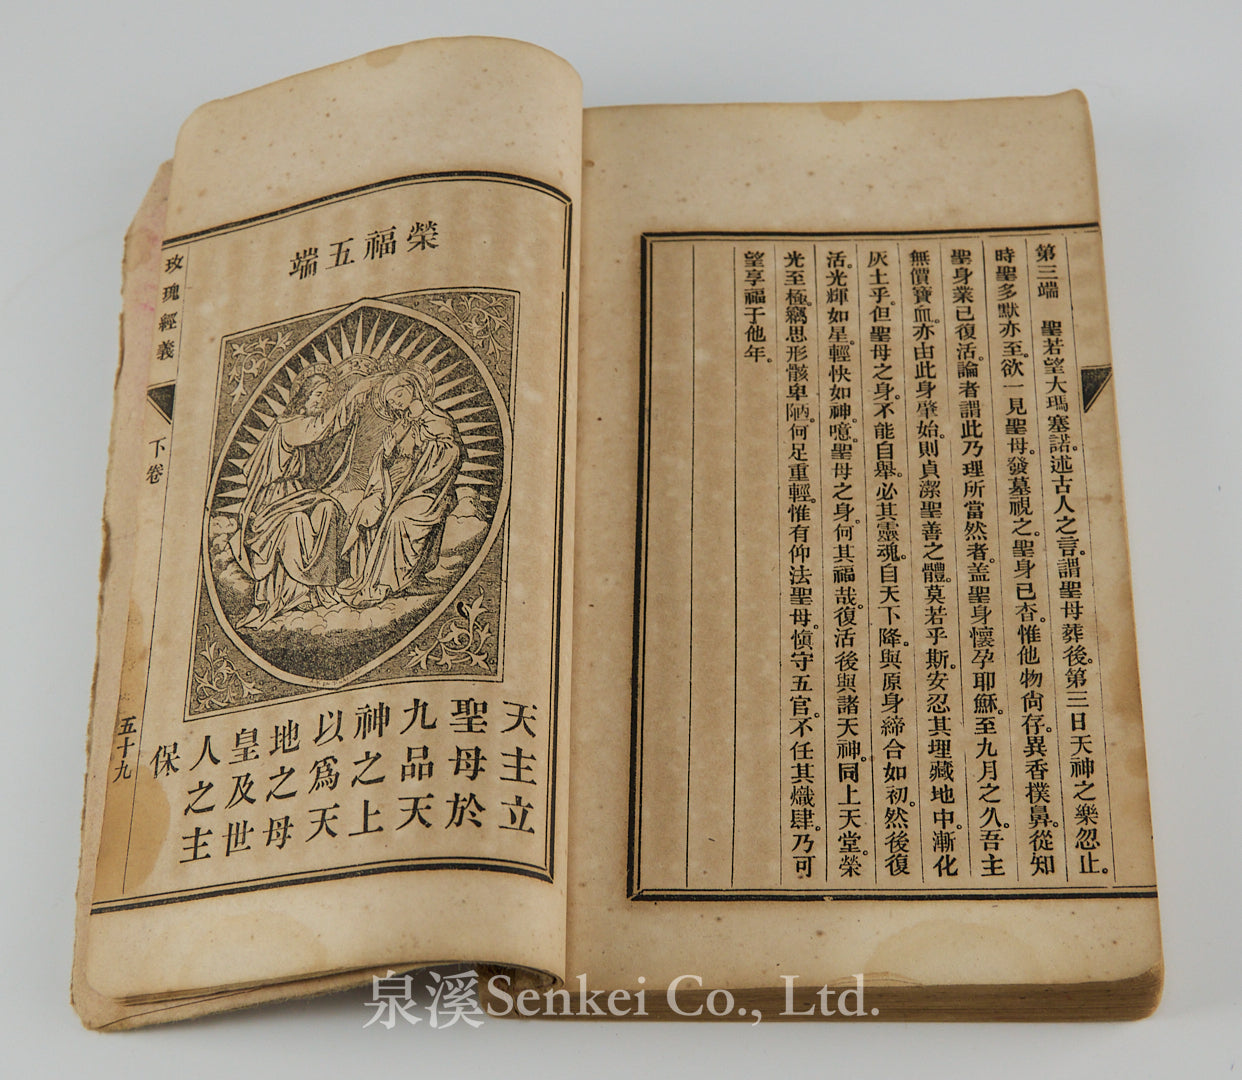 第三端　聖若望大瑪塞諾。述古人之言。謂聖母葬後。第三日天神之樂忽止。
時聖多默亦至。欲一見聖母。發墓視之。聖身已杳。惟他物尙存。異香撲鼻。從知
聖身業已復活。論者謂此乃理所當然者。盖聖身懷孕耶穌。至九月之久。吾主
無價寶血。亦由此身肇始。則貞潔聖善之體。莫若乎斯。安忍其埋藏地中。漸化
灰土乎。但聖母之身。不能自舉。必其靈魂。自天下降。與原身締合如初。然後復
活。光輝如星。輕快如神。噫。聖母之身。何其福哉。復活後與諸天神。同上天堂。榮
光至極。竊思形骸卑陋。何足重輕。惟有仰法聖母。愼守五官。不任其熾肆。乃可
望享福于他年。
榮福五端
天主立
聖母於
九品天
神之上
以爲天
地之母
皇及世
人之主
保
玫瑰經義
下卷
五十九
泉溪Senkei Co., Ltd.